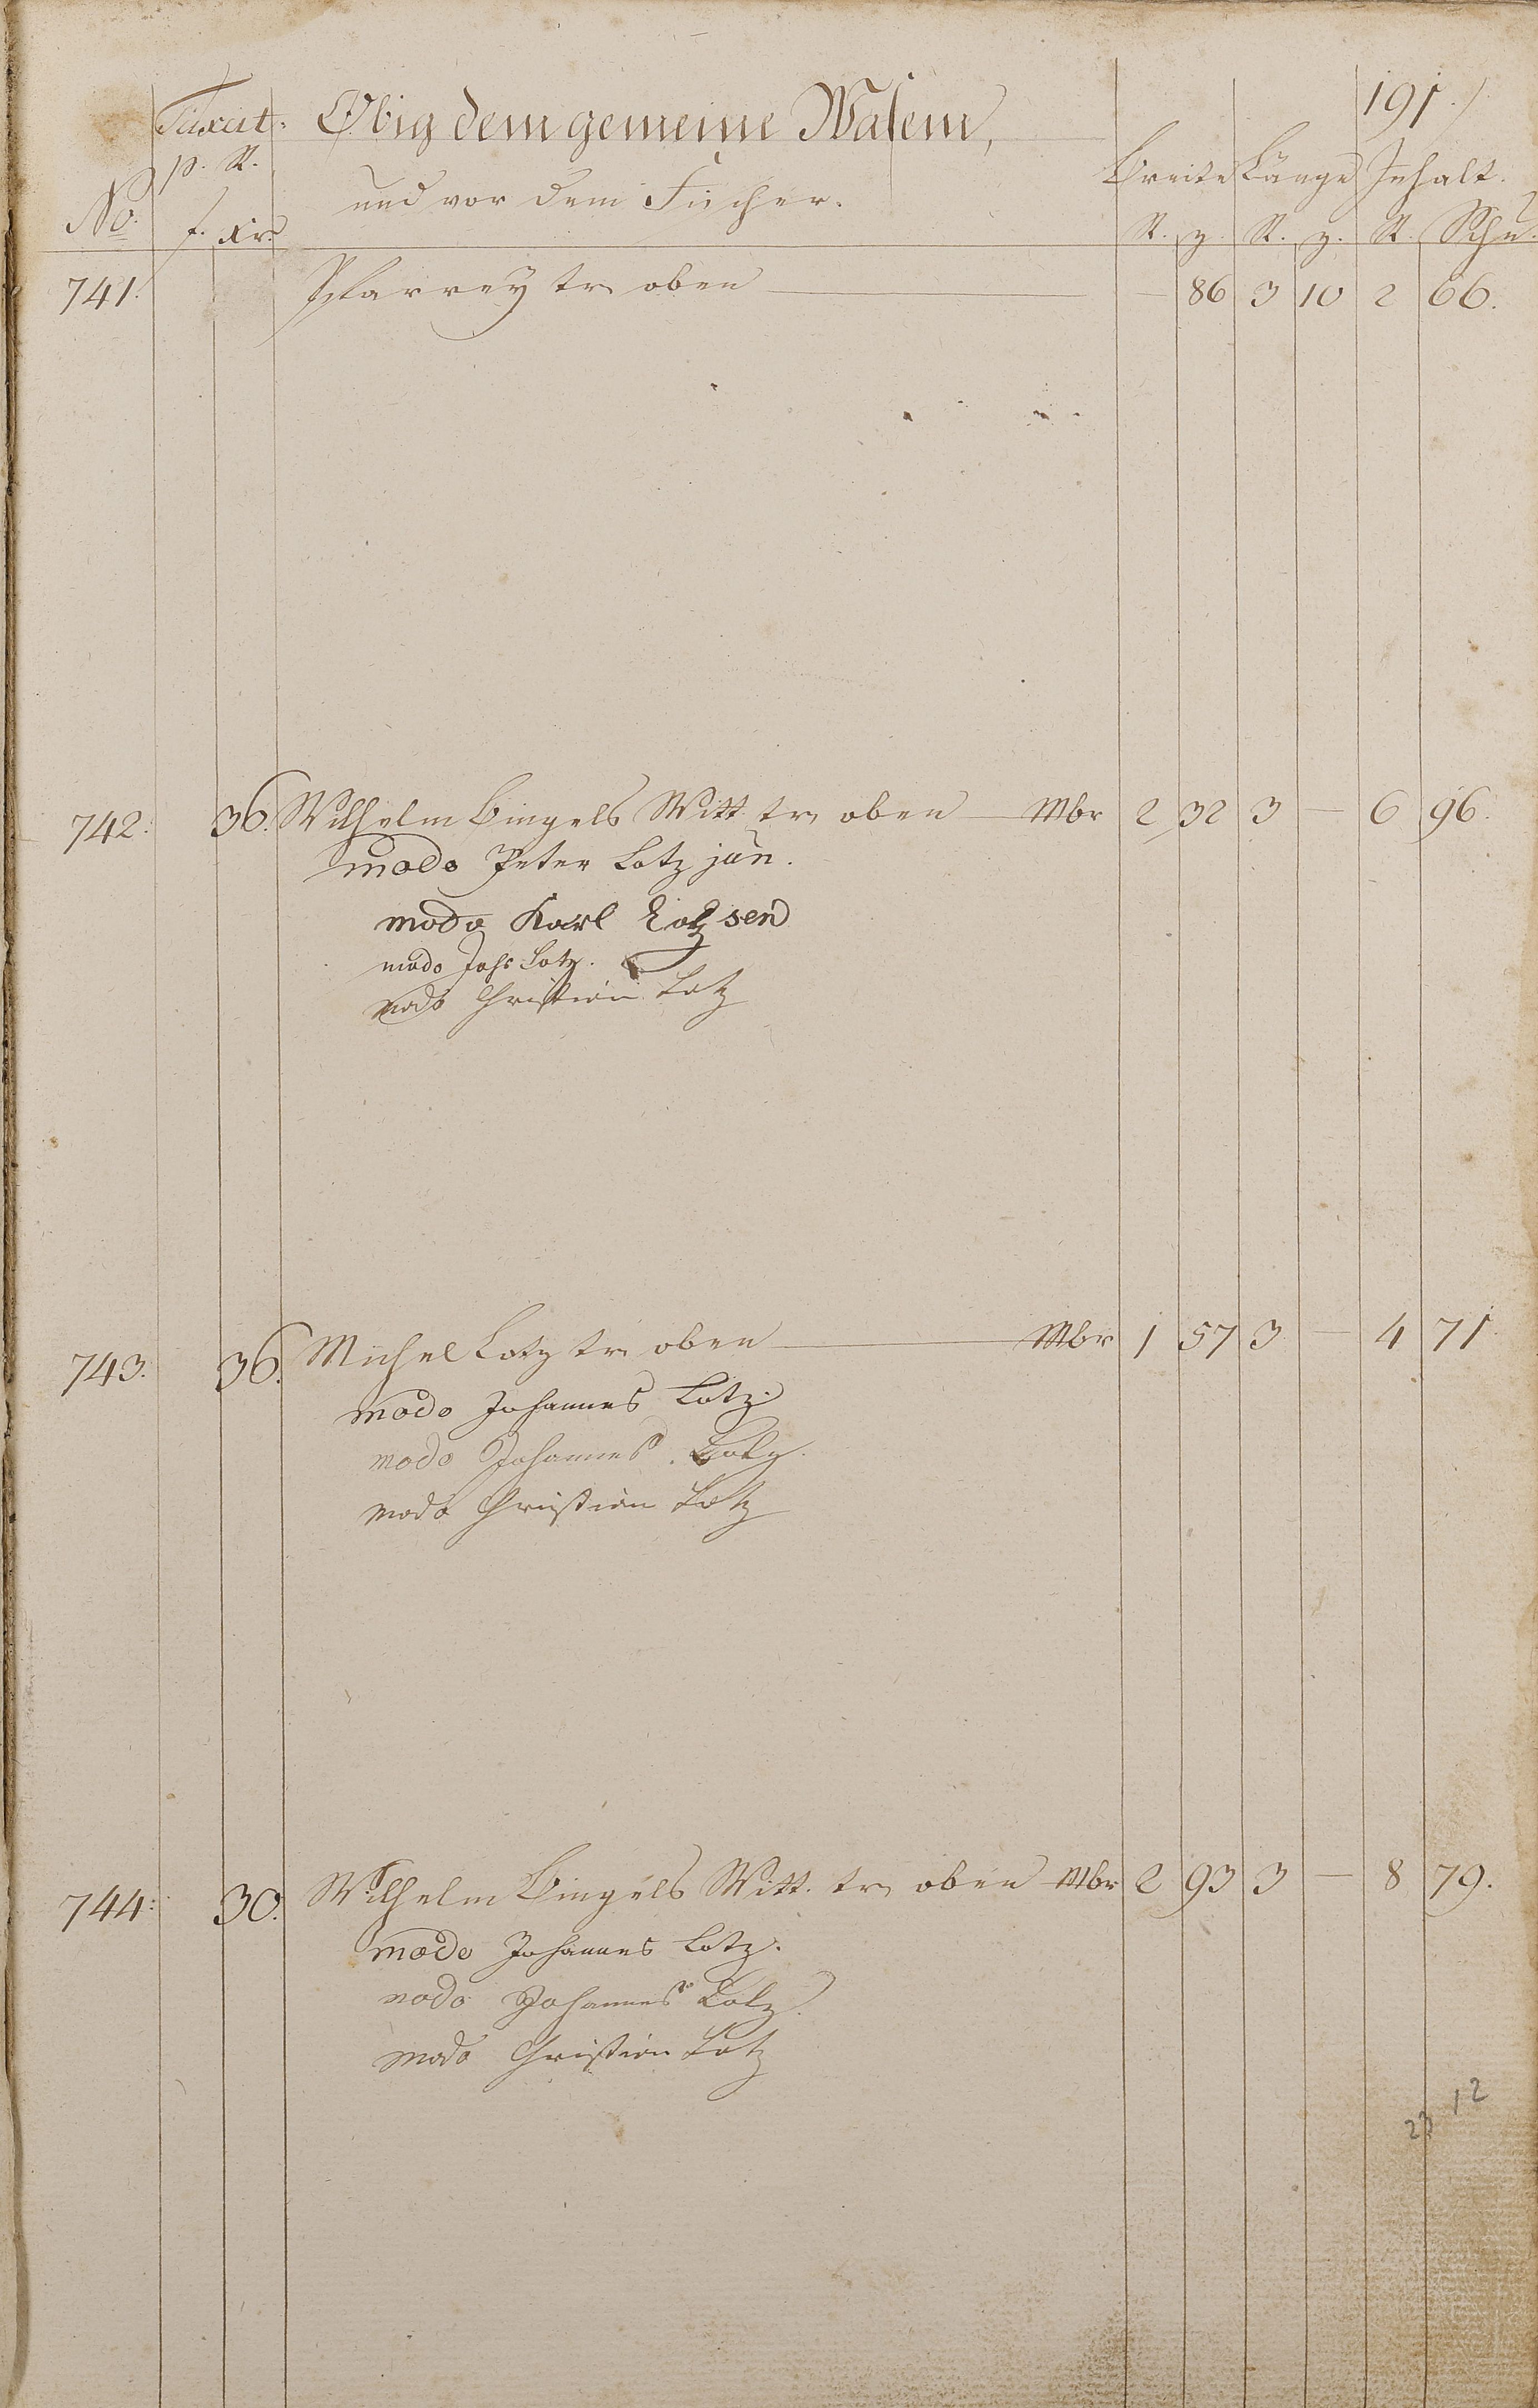 191.
Taxat: Obig dem gemeine Wasem,
p. R. und vor dem Fucher. Breite Länge Inhalt.
No. f. xr. R. z. R. z. R. Schu
741. Pfarrey tr. oben — 86 3 10 2 66.
742. 36. Wilhelm Bingels Witt. tr. oben Mbr 2 32 3 — 6 96.
modo Peter Lotz jun.
modo Karl Lotz sen
modo Johs Lotz.
modo Christian Lotz
743. 36. Michel Lotz tr. oben Mbr 1 57 3 — 4 71
modo Johannes Lotz.
modo Johannes Lotz.
modo Christian Lotz
744. 30. Wilhelm Bingels Witt. tr. oben Mbr 2 93 3 — 8 79.
modo Johannes Lotz.
modo Johannes Lotz.
modo Christian Lotz
23 12